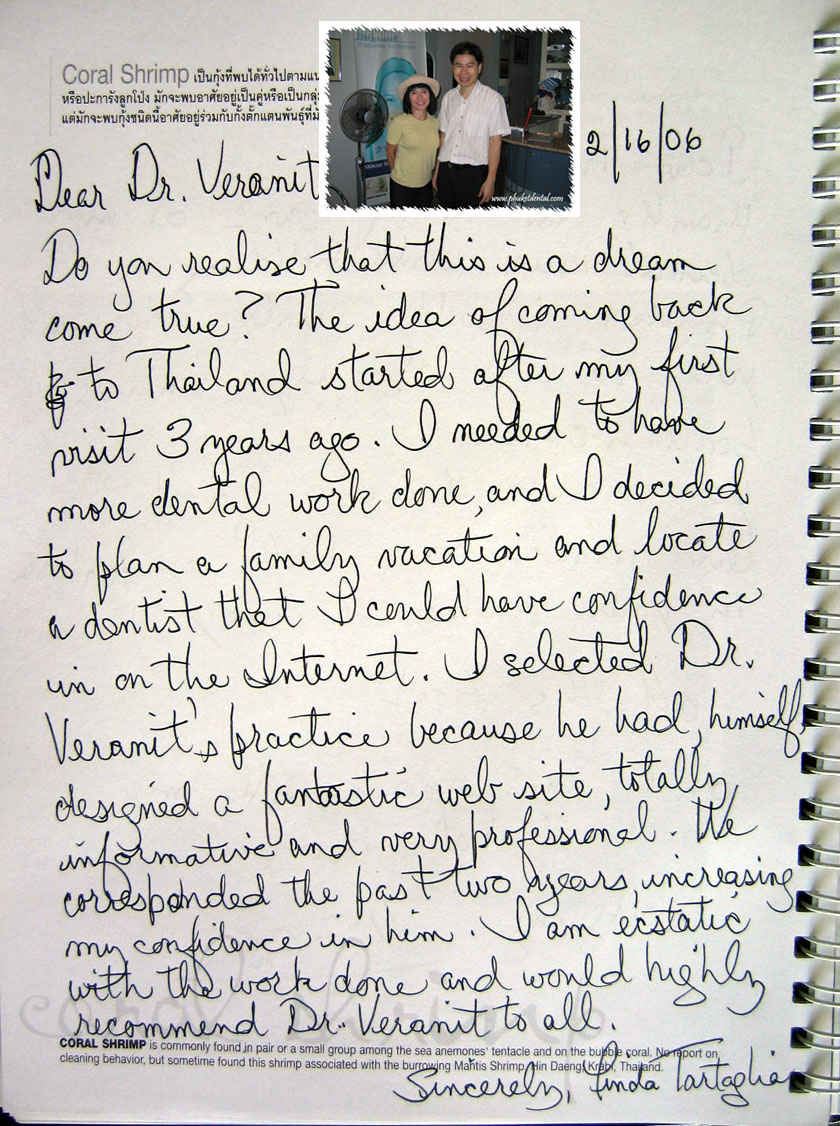 Coral Shrimp เป็นกุ้งที่พบได้ทั่วไปตามแน
หรือปะการังลูกโป่ง มักจะพบอาศัยอยู่เป็นคู่หรือเป็นกลุ่ม
แต่มักจะพบกุ้งชนิดนี้อาศัยอยู่ร่วมกับกั้งตั๊กแตนพันธุ์ที่
www.phuketdental.com
2/16/06
Dear Dr. Veranit
Do you realise that this is a dream
come true? The idea of coming back
to Thailand started after my first
visit 3 years ago. I needed to have
more dental work done, and I decided
to plan a family vacation and locate
a dentist that I could have confidence
in on the Internet. I selected Dr.
Veranit's practice because he had, himself,
designed a fantastic web site, totally
informative and very professional. We
corresponded the past two years, increasing
my confidence in him. I am ecstatic
with the work done and would highly
recommend Dr. Veranit to all.
coral shrimp
CORAL SHRIMP is commonly found in pair or a small group among the sea anemones' tentacle and on the bubble coral. No report on
cleaning behavior, but sometime found this shrimp associated with the burrowing Mantis Shrimp, Hin Daeng, Krabi, Thailand.
Sincerely, Linda Tartaglia